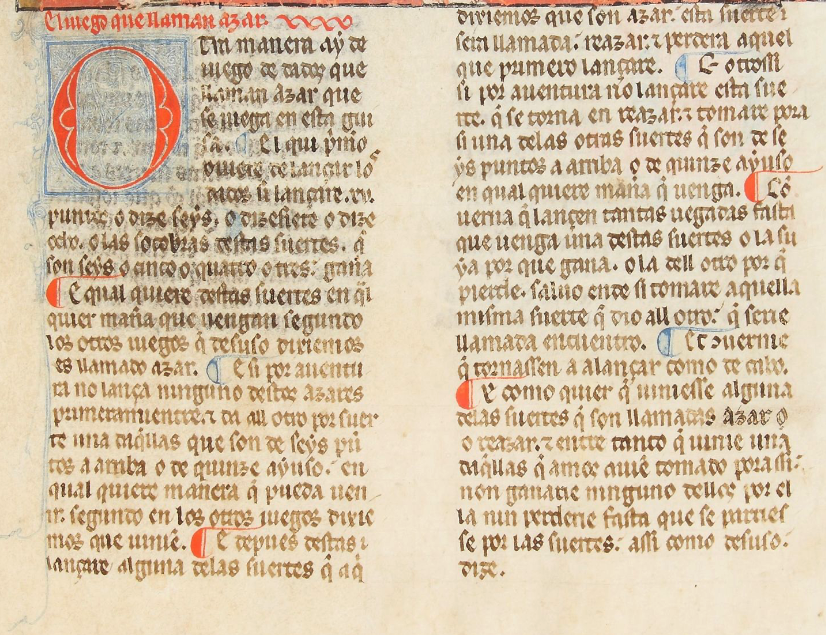 El iuego que llaman azar
Otra manera ay de
iuego de dados que
llaman azar que
se iuega en esta gui
sa. El que primo
ouiere de lançar los
dados si lançare .xv.
puntos o dize seys. o dizesiete o dize
ocho. o las soçobras destas suertes. q̃
son seys o cinco o quatro o tres: gana
E qual quiere destas suertes en q̃l
quier mañà que uengan segundo
los otros iuegos q̃ desuso dixiemos
es llamado azar. E si por auentu
ra no lança ninguno destos azares
primeramientre. ⁊ da all otro por suer
te una daq̃llas que son de seys pũ
tos a arriba o de quinze ayuso. en
qual quiere manera q̃ pueda uen
ir. segundo en los otros iuegos dixie
mos que uiniẽ. E depues destas
lançare alguna delas suertes q̃ aq̃
dixiemos que son azar. esta suerte
sera llamada: reazar. ⁊ perdera aquel
que primero lançare. E otrossi
si por auentura no lançare esta sue
rte. q̃ se torna en reazar. ⁊ tomare pora
si una delas otras suertes q̃ son de se
ys puntos a arriba o de quinze ayuso
en qual quiere mañà q̃ uenga. Cõ
uerna q̃ lançen tantas uegadas fasta
que uenga una destas suertes o la su
ya por que gana. o la dell otro por q̃
pierde. saluo ende si tomare aquella
misma suerte q̃ dio all otro: q̃ serie
llamada encuentro. Et conuernie
q̃ tornassen a alançar como de cabo.
E como quier q̃ uiniesse alguna
delas suertes q̃ son llamadas azar o
o reazar. ⁊ entre tanto q̃ uinie una
daq̃llas q̃ amos auiẽ tomado pora ssi:
non ganarie ninguno dellos por el
la nin perderie fasta que se parties
se por las suertes: assi como desuso.
dize.